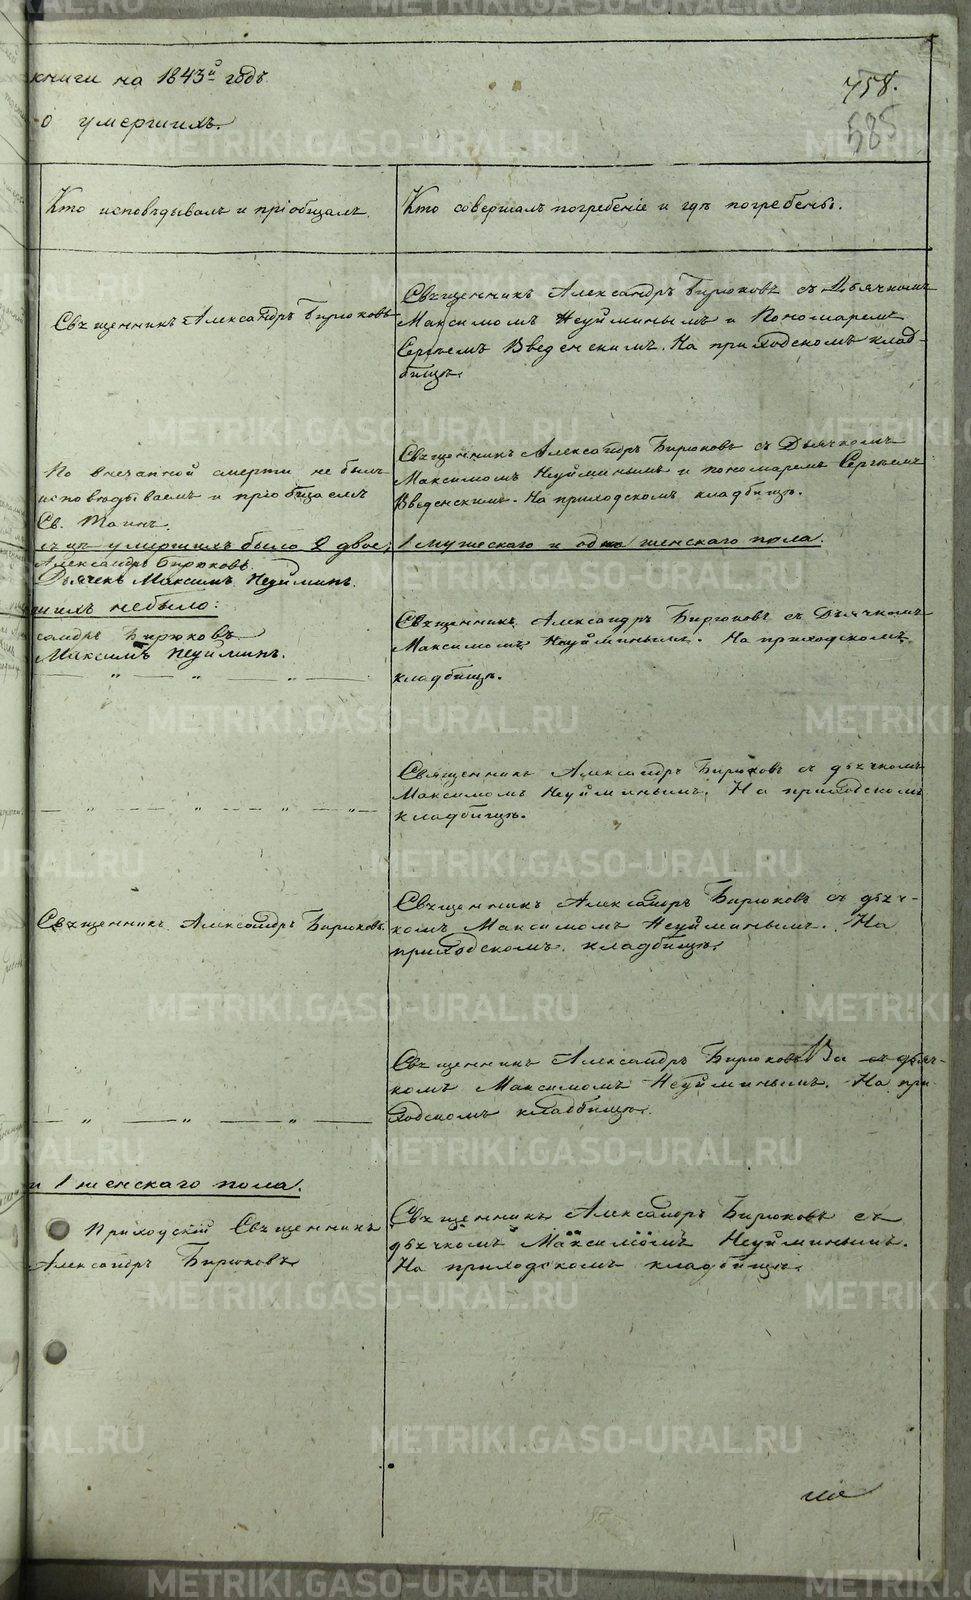 книги на 1843й годъ
758.
585
о умершихъ.
Кто исповѣдывалъ и пріобщалъ.
Кто совершалъ погребеніе и гдѣ погребены.
Священникъ Александръ Бирюковъ
Священникъ Александръ Бирюковъ съ Дьячкомъ
Максимомъ Неуйминымъ и Пономаремъ
Сергѣемъ Введенскимъ. На приходскомъ клад-
бищѣ.
По внечапной смерти не былъ
исповѣдываемъ и пріобщаемъ
Св. Таинъ.
Священникъ Александръ Бирюковъ съ Дьячкомъ
Максимомъ Неуйминымъ и пономаремъ Сергѣемъ
Введенскимъ. На приходскомъ кладбищѣ.
умершихъ было 2 двое, 1 мужескаго и одна женскаго пола.
Александръ Бирюковъ
Дьячекъ Максимъ Неуйминъ.
шихъ небыло:
сандръ Бирюковъ
Максимъ Неуйминъ.
Священникъ Александръ Бирюковъ съ Дьячкомъ
Максимомъ Неуйминымъ. На приходскомъ
кладбищѣ.
— „ — „ — „ —
Священникъ Александръ Бирюковъ съ дьячкомъ
Максимомъ Неуйминымъ. На приходскомъ
кладбищѣ.
— „ — „ — „ — „ —
Священникъ Александръ Бирюковъ.
Священникъ Александръ Бирюковъ съ дьяч-
комъ Максимомъ Неуйминымъ. На
приходскомъ кладбищѣ.
Священникъ Александръ Бирюковъ съ дьяч-
комъ Максимомъ Неуйминымъ. На при-
ходскомъ кладбищѣ.
— „ — „ — „ —
и 1 женскаго пола.
Приходскій Священникъ
Александръ Бирюковъ
Священникъ Александръ Бирюковъ съ
дьячкомъ Максимомъ Неуйминымъ.
На приходскомъ кладбищѣ.
METRIKI.GASO-URAL.RU